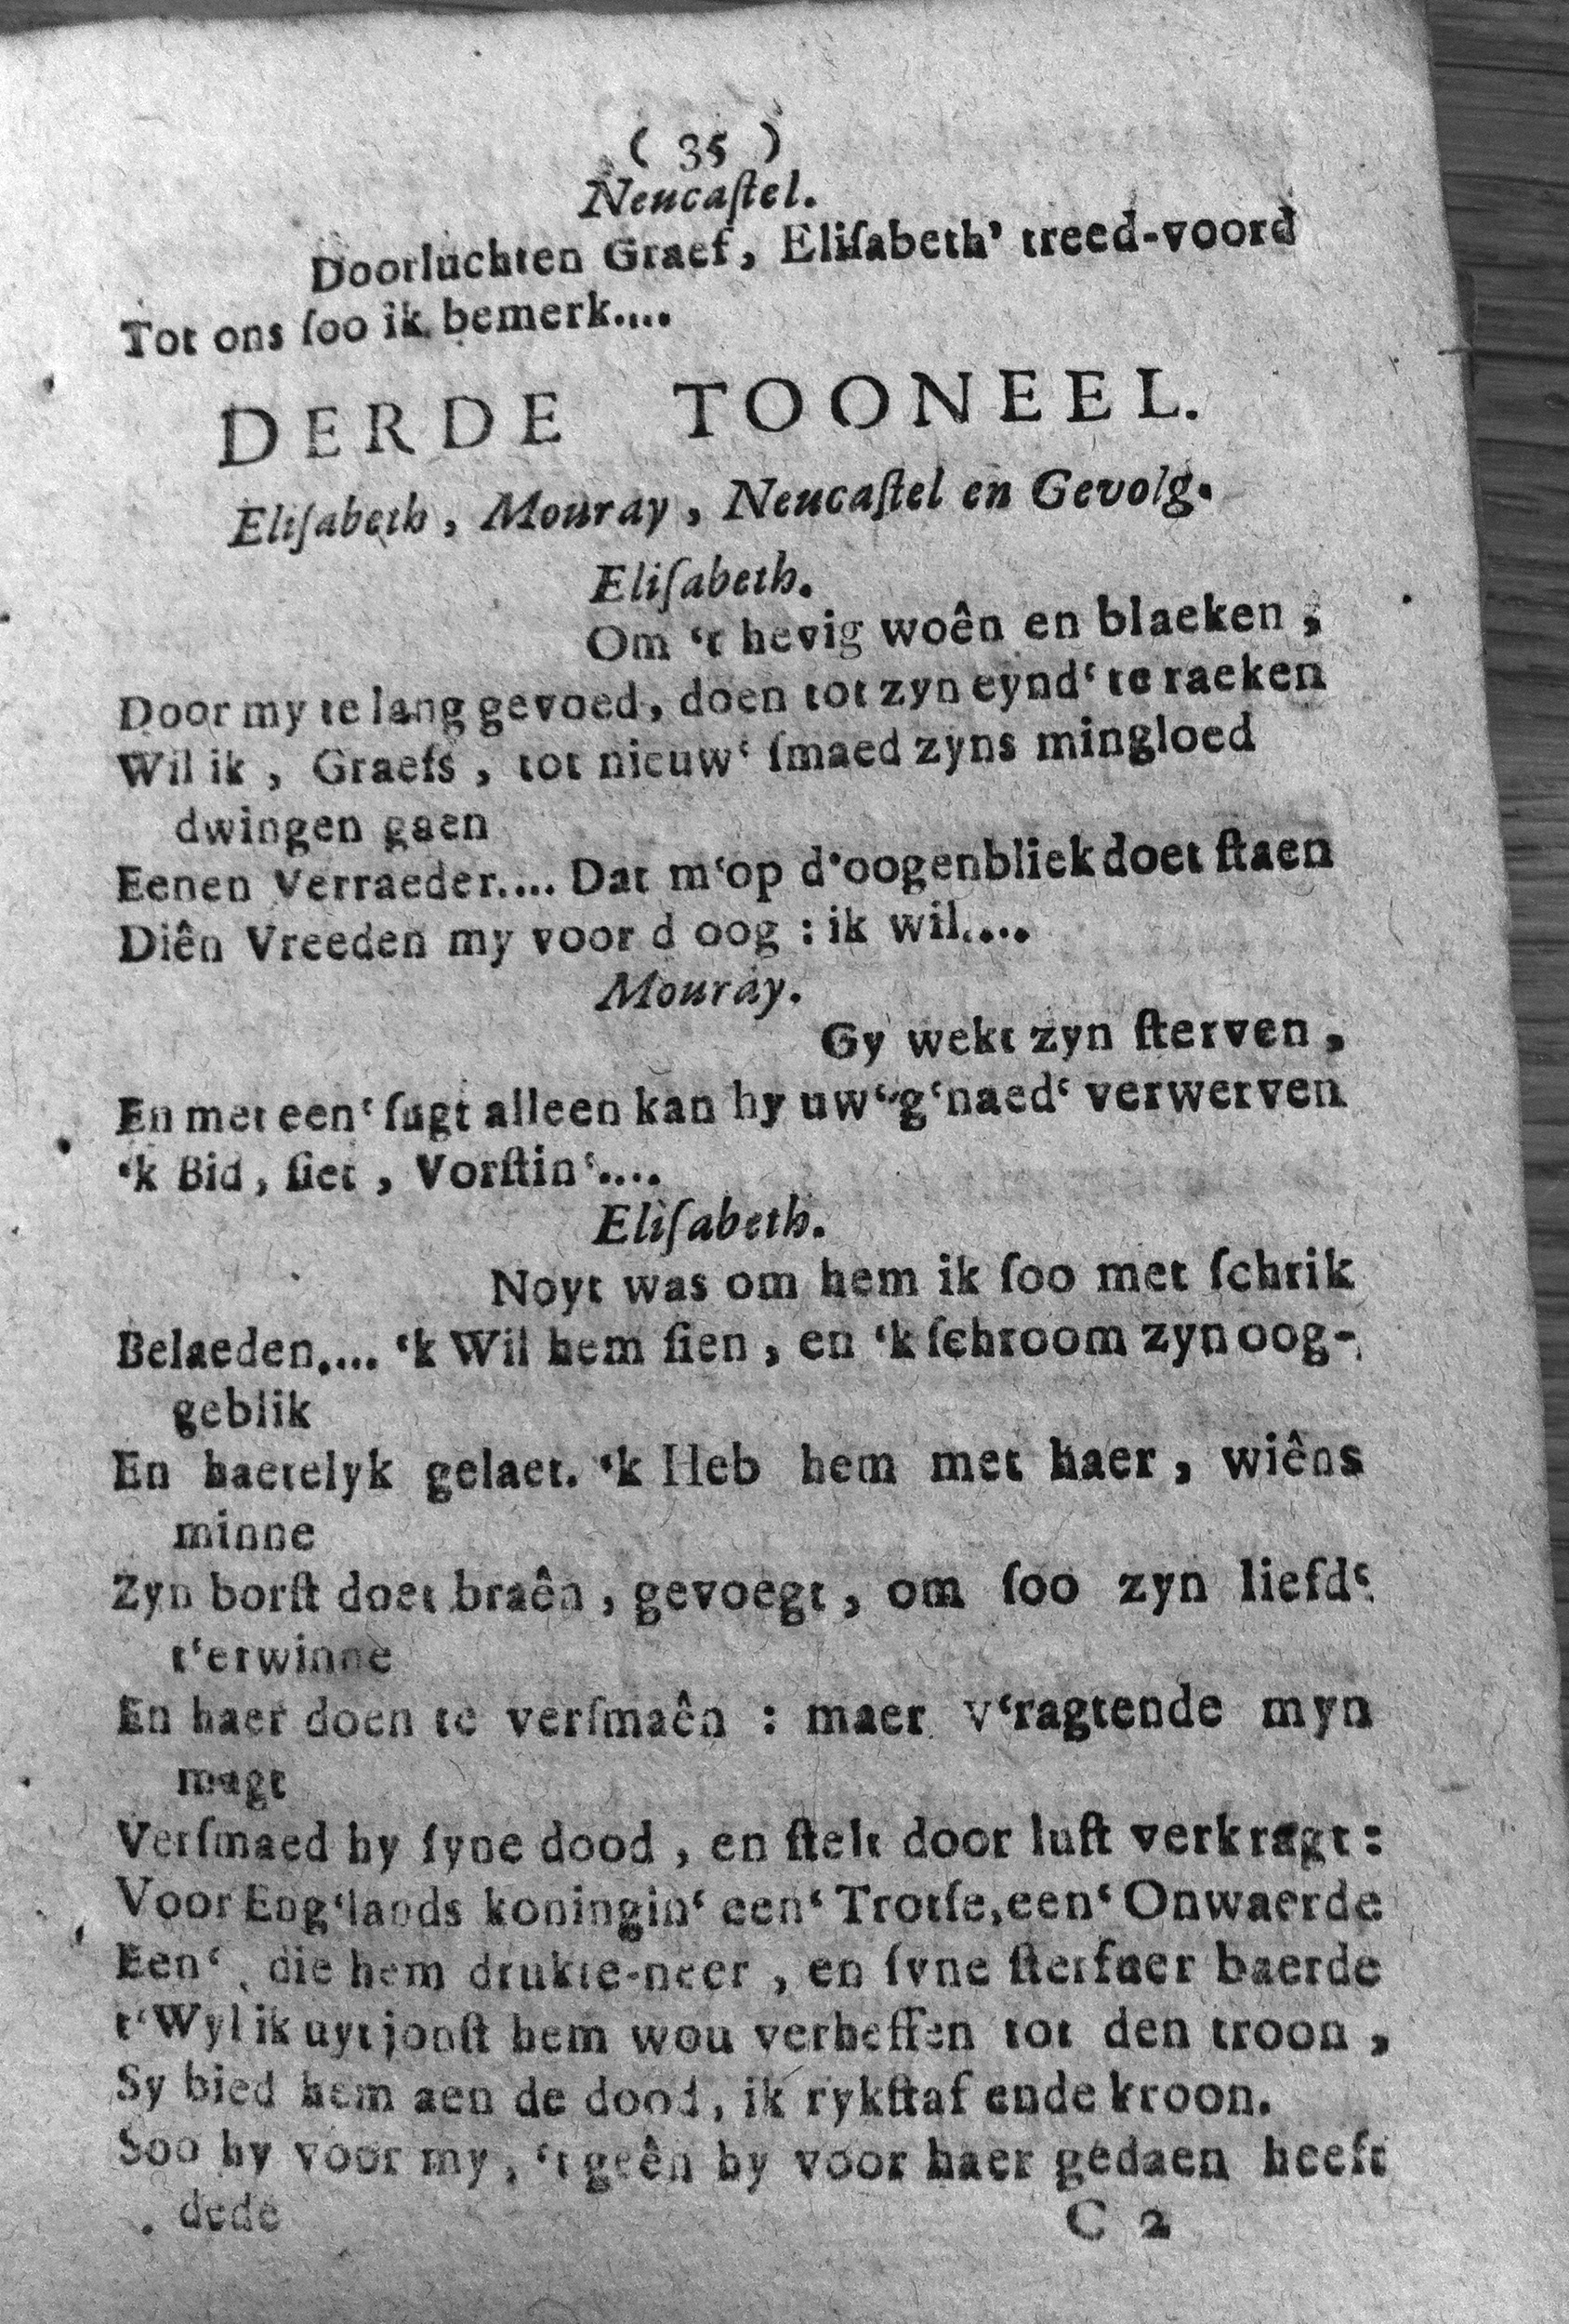 ( 35 )
Neucaſtel.
Doorluchten Graef, Eliſabeth' treed-voord
Tot ons ſoo ik bemerk....
DERDE TOONEEL.
Eliſabeth, Mouray, Neucaſtel en Gevolg.
Eliſabeth.
Om ‘t hevig woên en blaeken,
Door my te lang gevoed, doen tot zyn eynd‘ te raeken
Wil ik, Graefs, tot nieuw‘ ſmaed zyns mingloed
dwingen gaen
Eenen Verraeder.... Dat m‘op d'oogenbliek doet ſtaen
Diên Vreeden my voor d oog : ik wil....
Mouray.
Gy wekt zyn ſterven,
En met een‘ ſugt alleen kan hy uw‘'g‘naed‘ verwerven
‘k Bid, ſiet, Vorſtin‘....
Eliſabeth.
Noyt was om hem ik ſoo met ſchrik
Belaeden.... ‘k Wil hem ſien, en ‘k ſchroom zyn oog-
geblik
En haetelyk gelaet. ‘k Heb hem met haer, wiêns
minne
Zyn borſt doet braên, gevoegt, om ſoo zyn liefd‘
t‘erwinne
En haer doen te verſmaên : maer v‘ragtende myn
magt
Verſmaed hy ſyne dood, en ſtelt door luſt verkragt :
Voor Eng‘lands koningin‘ een‘ Trotſe, een‘ Onwaerde
Een‘, die hem drukte-neer, en ſyne ſterfuer baerde
t‘Wyl ik uyt jonſt hem wou verheffen tot den troon,
Sy bied hem aen de dood, ik rykſtaf ende kroon.
Soo hy voor my, ‘t geên hy voor haer gedaen heeft
dede
C 2